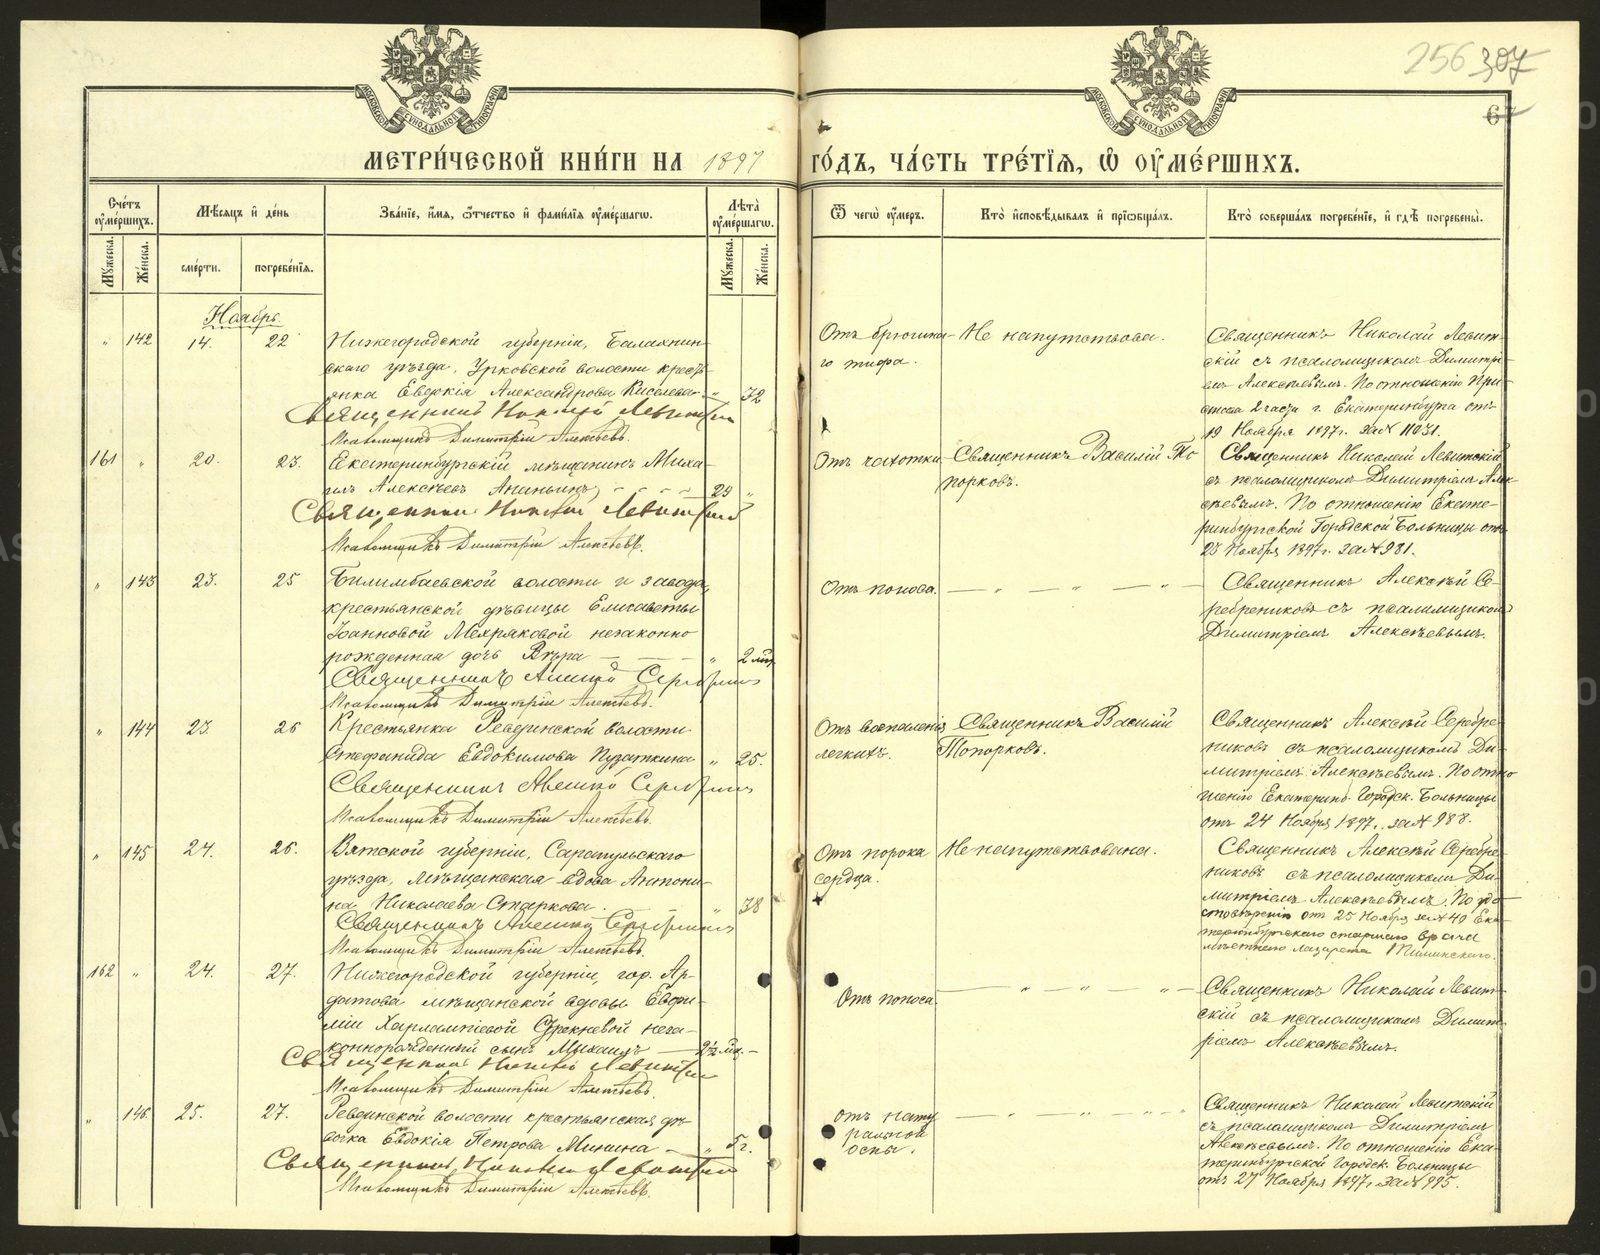 256 307
67
МЕТРИ́ЧЕСКОЙ КНИ́ГИ НА 1897 ГО́ДЪ, ЧА́СТЬ ТРЕ́ТІѦ, Ѡ҆ ОУ҆МЕ́РШИХЪ.
Сче́тъ оу҆ме́ршихъ.
Мѣ́сѧцъ и҆ де́нь
Зва́нїе, и҆́мѧ, ѻ҆́тчество и҆ фами́лїѧ оу҆ме́ршагѡ.
Лѣта̀ оу҆ме́ршагѡ.
Ѿ чегѡ̀ оу҆́меръ.
Кто̀ и҆сповѣ́дывалъ и҆ прїѡбща́лъ.
Кто̀ соверша́лъ погребе́нїе, и҆ гдѣ̀ погребены̀.
Мꙋ́жеска.
Же́нска.
сме́рти.
погребе́нїѧ.
Мꙋ́жеска.
Же́нска.
Ноябрь
" 142 14. 22
Нижегородской губерніи, Балахнин-
скаго уѣзда, Урковской волости кресть-
янка Евдокія Александрова Киселева " 72
Священникъ Николай Левитскій
Псаломщикъ Димитрій Алексѣевъ.
Отъ брюшна-
го тифа.
Не напутствова.
Священникъ Николай Левит-
скій съ псаломщикомъ Димитрі-
емъ Алексѣевымъ. По отношенію При-
става 2 части г. Екатеринбурга отъ
19 Ноября 1897 г. за № 11031.
161 " 20. 23.
Екатеринбургскій мѣщанинъ Миха-
илъ Алексѣевъ Ананьинъ 29 "
Священникъ Николай Левитскій
Псаломщикъ Димитрій Алексѣевъ.
Отъ чахотки
Священникъ Василій То-
порковъ.
Священникъ Николай Левитскій
съ псаломщикомъ Димитріемъ Алек-
сѣевымъ. По отношенію Екате-
ринбургской Городской Больницы отъ
23 Ноября 1897 г. за № 981.
" 143 23. 25
Билимбаевской волости и завода,
крестьянской дѣвицы Елисаветы
Іоанновой Мехряковой незаконно
рожденная дочь Вѣра " 2 мѣс.
Священникъ Алексѣй Серебрениковъ
Псаломщикъ Димитрій Алексѣевъ.
Отъ поноса.
— " — " — " —
Священникъ Алексѣй Се-
ребрениковъ съ псаломщикомъ
Димитріемъ Алексѣевымъ.
" 144 23. 26
Крестьянка Ревдинской волости
Стефанида Евдокимова Пузаткина " 25.
Священникъ Алексѣй Серебрениковъ
Псаломщикъ Димитрій Алексѣевъ.
Отъ воспаленія
легкихъ.
Священникъ Василій
Топорковъ.
Священникъ Алексѣй Серебре-
никовъ съ псаломщикомъ Ди-
митріемъ Алексѣевымъ. По отно
шенію Екатеринб. Городск. Больницы
отъ 24 Ноября 1897 г. за № 988.
" 145 24. 26.
Вятской губерніи, Сарапульскаго
уѣзда, мѣщанская вдова Антони-
на Николаева Старкова. " 38
Священникъ Алексѣй Серебрениковъ
Псаломщикъ Димитрій Алексѣевъ.
Отъ порока
сердца.
Не напутствована.
Священникъ Алексѣй Серебре-
никовъ съ псаломщикомъ Ди-
митріемъ Алексѣевымъ. По удо-
стовѣренію отъ 25 Ноября за № 40 Ека-
теринбургскаго старшаго врача
мѣстнаго лазарета
162 " 24. 27.
Нижегородской губерніи, гор. Ар-
датова мѣщанской вдовы Евфи-
міи Харлампіевой незa-
коннорожденный сынъ Михаилъ 2½ мѣс. —
Священникъ Николай Левитскій
Псаломщикъ Димитрій Алексѣевъ.
Отъ поноса.
— " — " — " —
Священникъ Николай Левит-
скій съ псаломщикомъ Димит-
ріемъ Алексѣевымъ.
" 146. 25. 27.
Ревдинской волости крестьянская дѣ-
вочка Евдокія Петрова Минина — " 5 г.
Священникъ Николай Левитскій
Псаломщикъ Димитрій Алексѣевъ.
отъ нату
ральной
оспы.
— " — " — " —
Священникъ Николай Левитскій
съ псаломщикомъ Димитріемъ
Алексѣевымъ. По отношенію Ека-
теринбургской Городск. Больницы
отъ 27 Ноября 1897 г. за № 995.